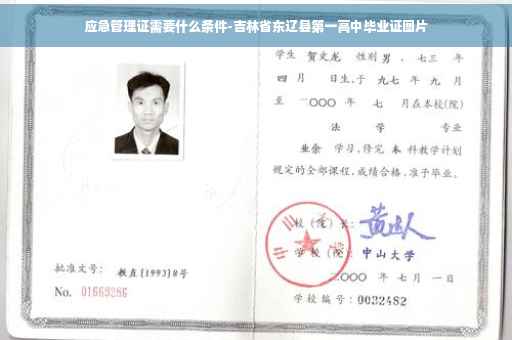 应急管理证需要什么条件-吉林省东辽县第一高中毕业证图片
学生 贺文龙 性别 男 , 七三 年
四 月 日生,于 九七 年 九 月
至 二〇〇〇 年 七 月在本校(院)
法 学 专业
业余 学习,修完 本 科教学计划
规定的全部课程,成绩合格,准予毕业。
校(院)长:
学 校(院): 中山大学
二〇〇〇 年 七 月 一 日
批准文号: 教直[1993]8号
No. 01669286
学校编号: 0032482